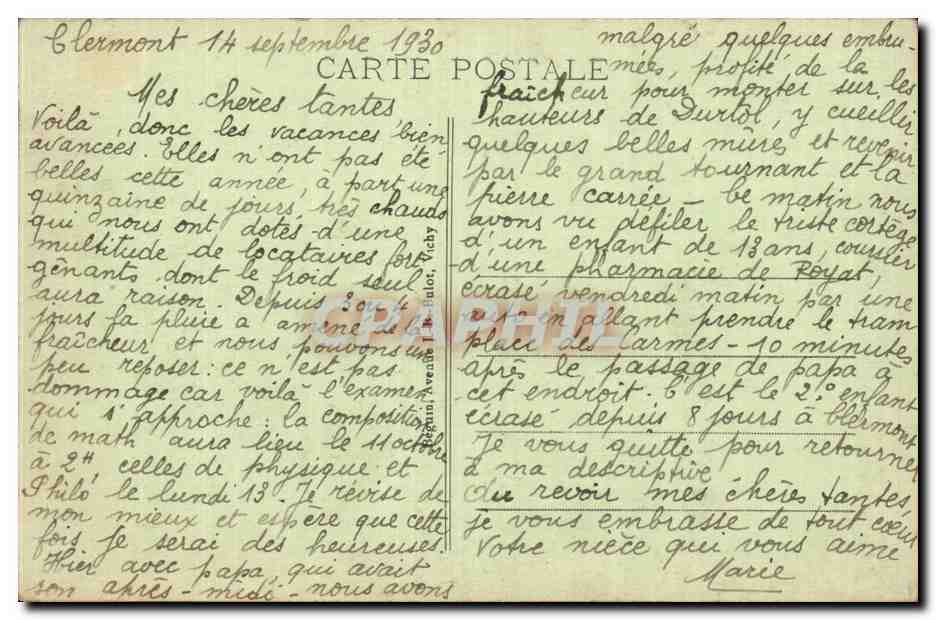 Clermont 14 septembre 1930
CARTE POSTALE
Mes chères tantes
Voilà, donc les vacances bien
avancées. Elles n'ont pas été
belles cette année, à part une
quinzaine de jours, très chauds
qui nous ont dotés d'une
multitude de locataires fort
gênants dont le froid seul
aura raison. Depuis 3 ou 4
jours la pluie a amené de la
fraîcheur et nous pouvons un
peu reposer : ce n'est pas
dommage car voilà l'examen
qui s'approche : la composition
de math aura lieu le 11 octobre
à 2H celles de physique et
Philo le lundi 13. Je révise de
mon mieux et espère que cette
fois je serai des heureuses.
Hier avec papa, qui avait
son après-midi - nous avons
malgré quelques embru-
mées, profité de la
fraîcheur pour monter sur les
hauteurs de Durtol, y cueillir
quelques belles mûres et revenir
par le grand tournant et la
pierre carrée - Ce matin nous
avons vu défiler le triste cortège
d'un enfant de 13 ans, coursier
d'une pharmacie de Royat,
écrasé vendredi matin par une
auto en allant prendre le tram
place des Carmes - 10 minutes
après le passage de papa à
cet endroit. C'est le 2° enfant
écrasé depuis 8 jours à Clermont
Je vous quitte pour retourner
à ma descriptive
Au revoir mes chères tantes,
je vous embrasse de tout cœur
Votre nièce qui vous aime
Marie
Béguin, Avenue Bulot, Vichy
CPAPHIL